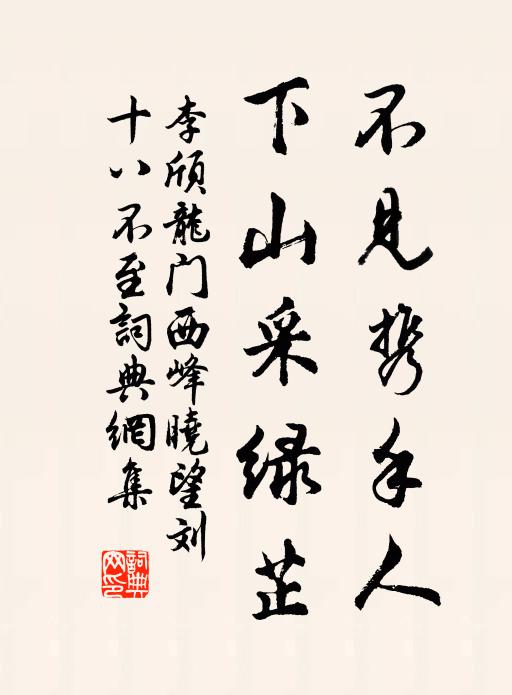 不见携手人
下山采绿芷
李颀龍门西峰曉望刘
十八不至詞典網集
詞典网印